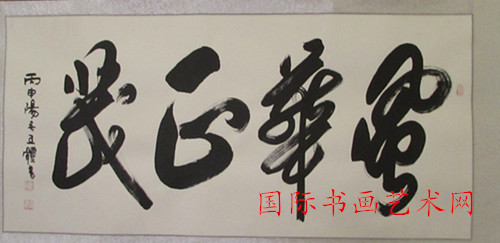 風華正茂
丙申陽
国际书画艺术网